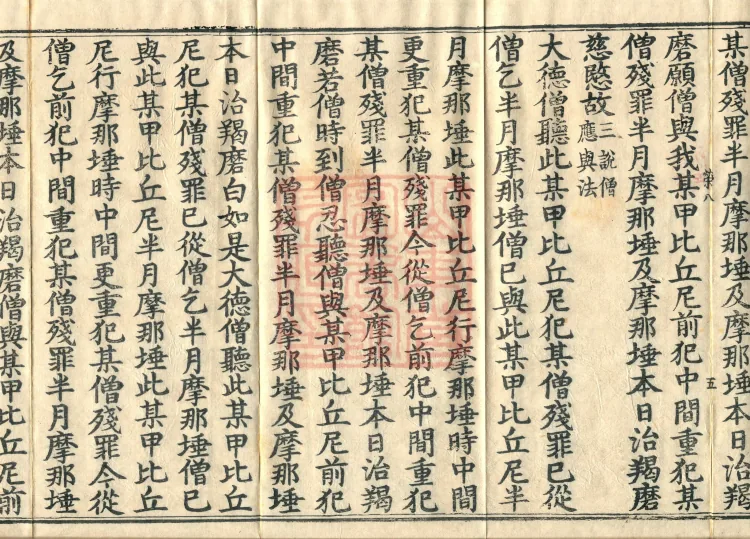 某僧殘罪半月摩那埵及摩那埵本日治羯
第八 五
磨願僧與我某甲比丘尼前犯中間重犯某
僧殘罪半月摩那埵及摩那埵本日治羯磨
慈愍故三說僧應與法
大德僧聽此某甲比丘尼犯某僧殘罪已從
僧乞半月摩那埵僧已與此某甲比丘尼半
月摩那埵此某甲比丘尼行摩那埵時中間
更重犯某僧殘罪今從僧乞前犯中間重犯
某僧殘罪半月摩那埵及摩那埵本日治羯
磨若僧時到僧忍聽僧與某甲比丘尼前犯
中間重犯某僧殘罪半月摩那埵及摩那埵
本日治羯磨白如是大德僧聽此某甲比丘
尼犯某僧殘罪已從僧乞半月摩那埵僧已
與此某甲比丘尼半月摩那埵此某甲比丘
尼行摩那埵時中間更重犯某僧殘罪今從
僧乞前犯中間重犯某僧殘罪半月摩那埵
及摩那埵本日治羯磨僧與某甲比丘尼前